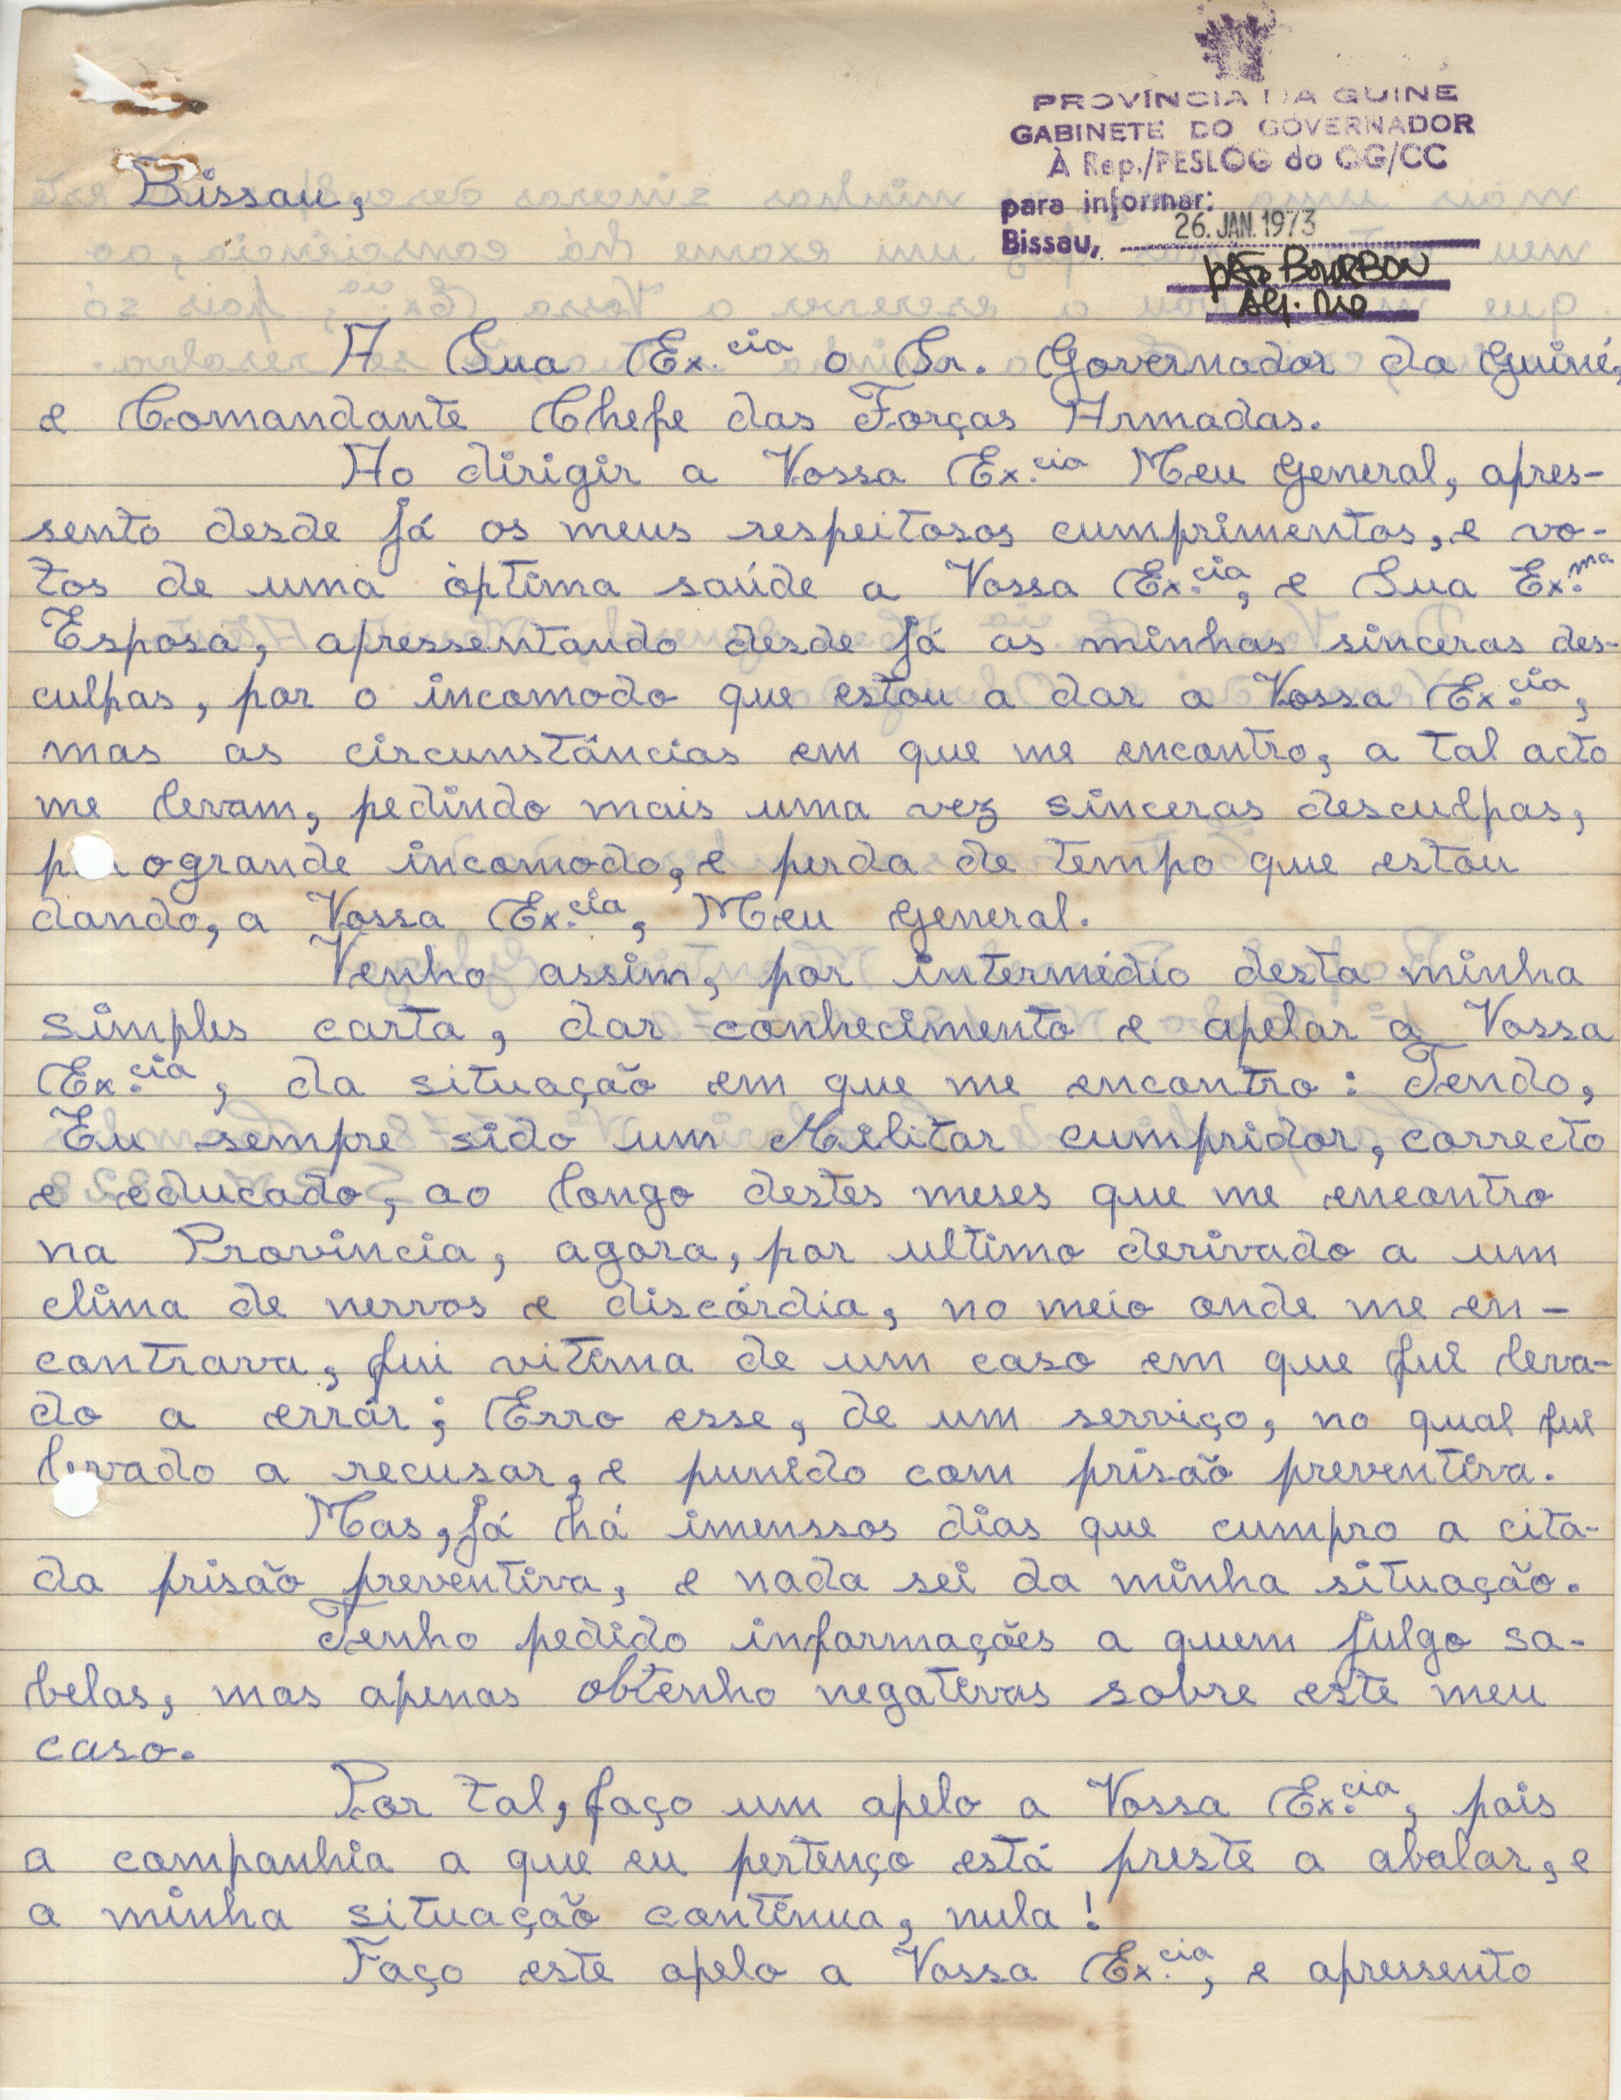 PROVÍNCIA DA GUINÉ
GABINETE DO GOVERNADOR
À Rep./PESLOG do QG/CC
para informar:
Bissau, 26. JAN. 1973
BOURBON
Bissau,
A Sua Ex.cia o Sr. Governador da Guiné,
e Comandante Chefe das Forças Armadas.
Ao dirigir a Vossa Ex.cia Meu General, apres-
sento desde já os meus respeitosos cumprimentos, e vo-
tos de uma óptima saúde a Vossa Ex.cia, e Sua Ex.ma
Esposa, apressentando desde já as minhas sinceras des-
culpas, por o incomodo que estou a dar a Vossa Ex.cia,
mas as circunstâncias em que me encontro, a tal acto
me levam, pedindo mais uma vez sinceras desculpas,
o grande incomodo, e perda de tempo que estou
dando, a Vossa Ex.cia, Meu General.
Venho assim, por intermédio desta minha
simples carta, dar conhecimento e apelar a Vossa
Ex.cia, da situação em que me encontro: Tendo,
Eu sempre sido um Militar cumpridor, correcto
e educado, ao longo destes meses que me encontro
na Província, agora, por ultimo derivado a um
clima de nervos e discórdia, no meio onde me en-
contrava, fui vitima de um caso em que fui leva-
do a errár; Erro esse, de um serviço, no qual fui
levado a recusar, e punido com prisão preventiva.
Mas, já há imenssos dias que cumpro a cita-
da prisão preventiva, e nada sei da minha situação.
Tenho pedido informações a quem julgo sa-
belas, mas apenas obtenho negativas sobre este meu
caso.
Por tal, faço um apelo a Vossa Ex.cia, pois
a companhia a que eu pertenço está preste a abalar, e
a minha situação continua, nula!
Faço este apelo a Vossa Ex.cia, e apressento